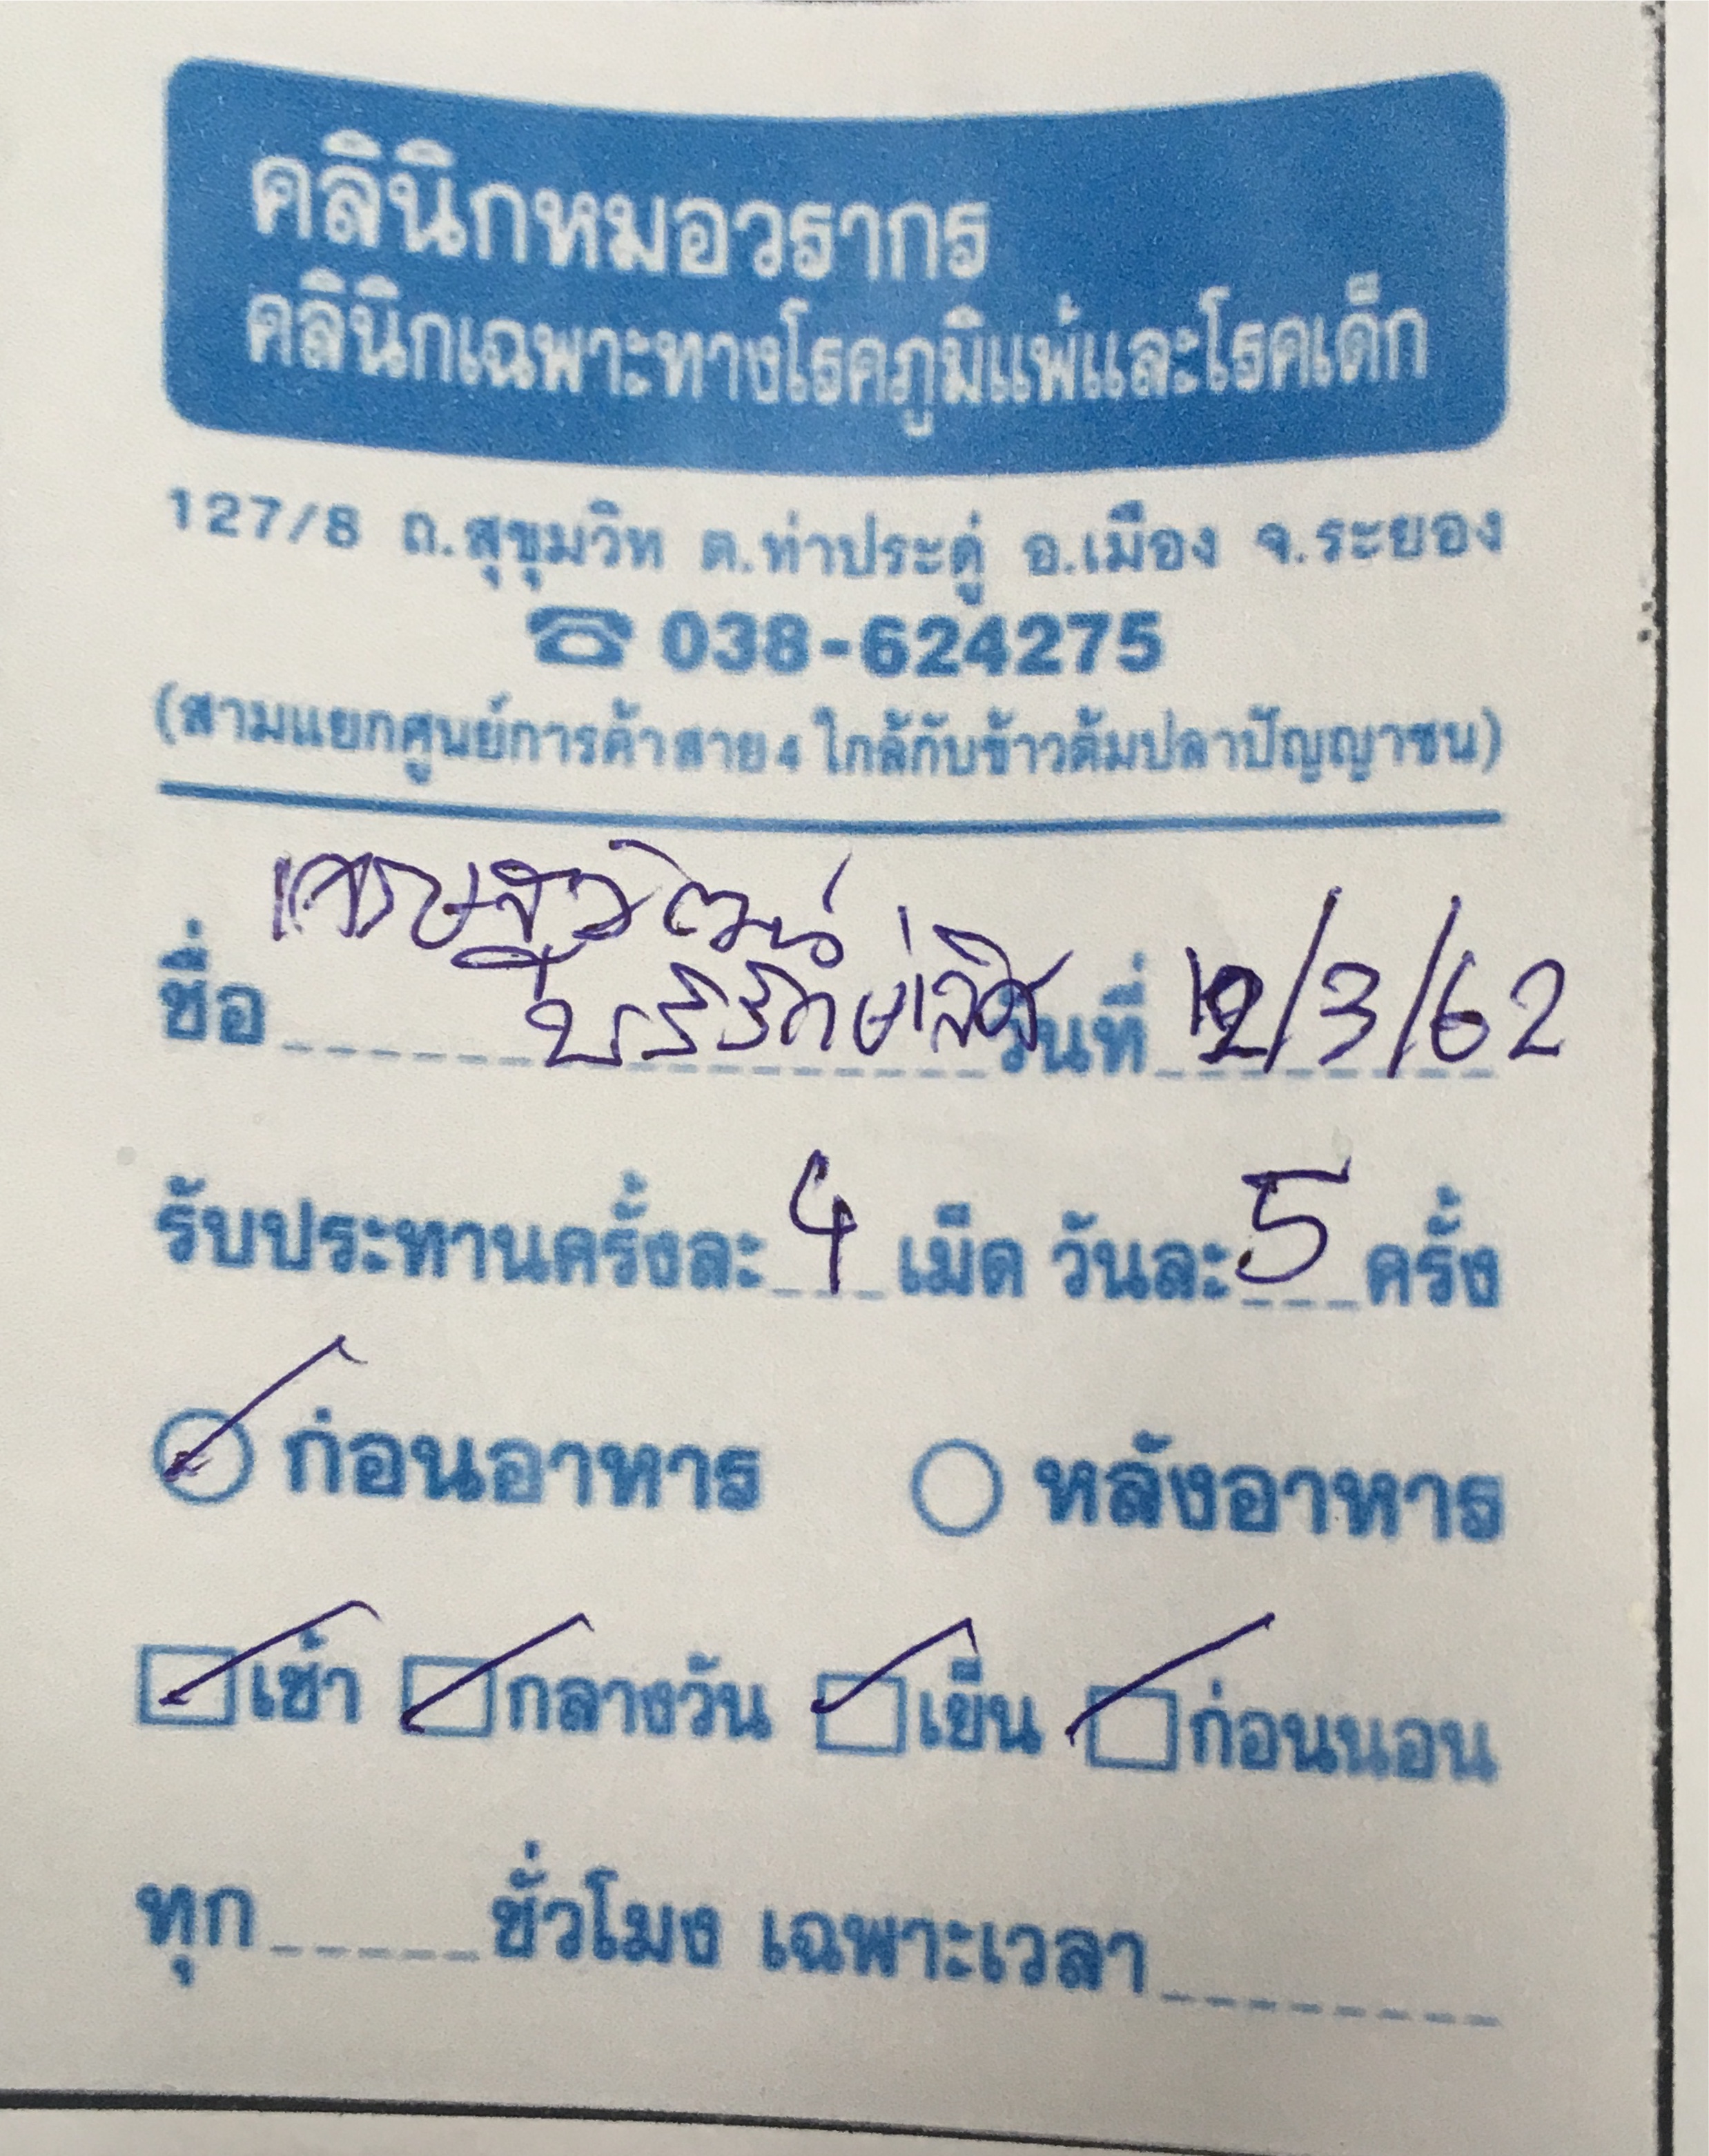 คลินิกหมอวรากร
คลินิกเฉพาะทางโรคภูมิแพ้และโรคเด็ก
127/8 ถ.สุขุมวิท ต.ท่าประดู่ อ.เมือง จ.ระยอง
☎ 038-624275
(สามแยกศูนย์การค้าสาย 4 ใกล้กับข้าวต้มปลาปัญญาชน)
เศรษฐวัฒน์
ชื่อ วันที่ 12/3/62
รับประทานครั้งละ 4 เม็ด วันละ 5 ครั้ง
ก่อนอาหาร หลังอาหาร
เช้า กลางวัน เย็น ก่อนนอน
ทุก ชั่วโมง เฉพาะเวลา